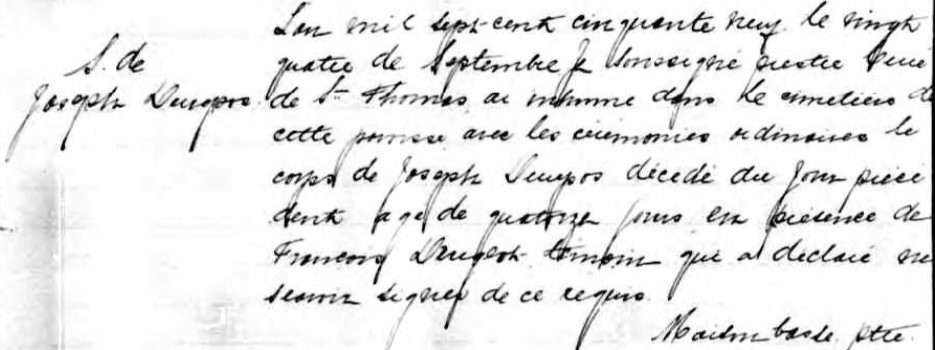 S. de
Joseph Durepos
Lan mil sept-cent cinquante neuf le vingt
quatre de Septembre Je Soussigné prestre Curé
de St Thomas ai inhumé dans le cimetiere de
cette paroisse avec les cérémonies ordinaires le
corps de Joseph Durepos décédé du Jour précé
dent agé de quatorze jours en présence de
François témoin qui a déclaré ne
scavoir signer de ce requis.
Maisonbasse ptre.